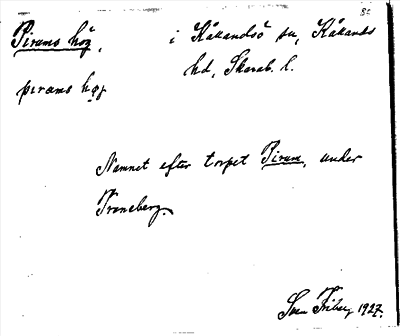 Pirums hög,
i Kållandsö sn, Kållands
hd, Skarab. l.
pirams høg
Namnet efter torpet Pirum, under
Traneberg.
Sven Friberg 1927.